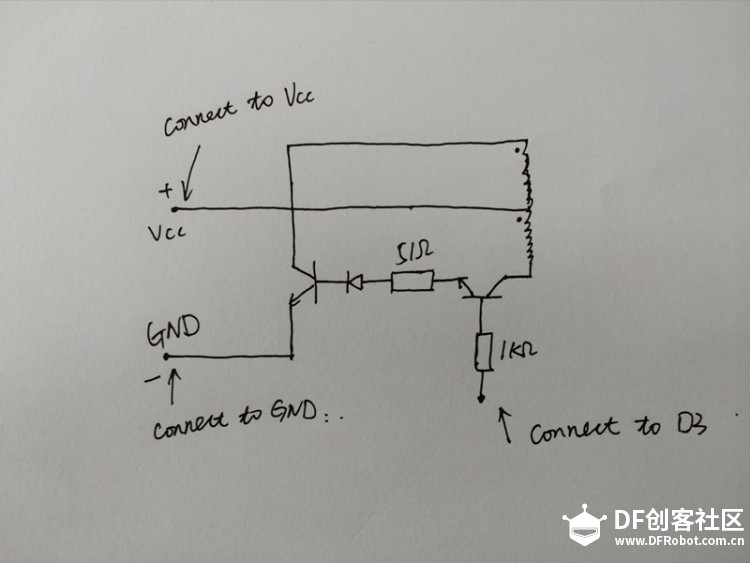 Connect to Vcc
+
Vcc
51Ω
GND
1KΩ
−
Connect to GND:.
Connect to D3
DF创客社区
www.DFRobot.com.cn